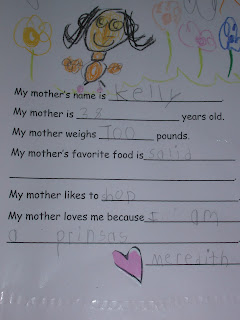 My mother's name is Kelly
My mother is 38 years old.
My mother weighs 100 pounds.
My mother's favorite food is salid
My mother likes to hop
My mother loves me because I am
a prinsas
meredith